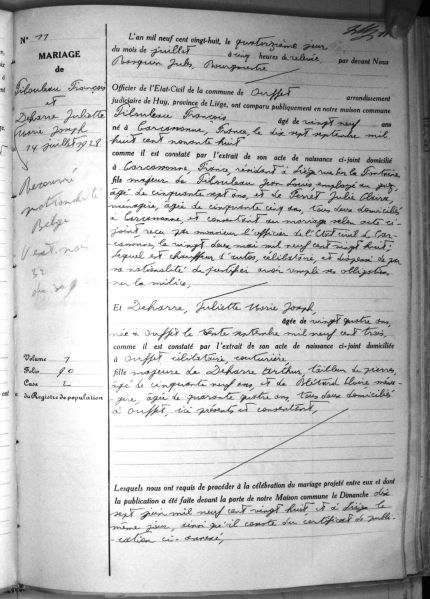 N° 11
MARIAGE
de
François
et
Deharre Juliette
Marie Joseph
14 juillet 1928
nationalité
Belge
Volume 7
Folio 90
Case 2
du Registre du population
L'an mil neuf cent vingt-huit, le quatorzième jour
du mois de juillet à cinq heures de relevée, par devant Nous
Jules Bourgmestre
Officier de l'Etat-Civil de la commune de Ouffet arrondissement
judiciaire de Huy, province de Liége, ont comparu publiquement en notre maison commune
François âgé de vingt neuf ans
né à Carcassonne, France, le dix sept septembre mil
huit cent nonante huit
comme il est constaté par l'extrait de son acte de naissance ci-joint domicilié
à Carcassonne, France, résidant à Liége rue
fils majeur de Jean Louis employé au gaz,
âgé de cinquante sept ans, et de Julie Claire,
ménagère, âgée de cinquante cinq ans, tous deux domiciliés
à Carcassonne, et consentant au mariage selon acte ci-
joint reçu par monsieur l'officier de l'Etat civil de Car-
cassonne, le vingt deux mai mil neuf cent vingt huit;
lequel est chauffeur d'autos, célibataire, et dispensé de par
sa nationalité de justifier avoir rempli ses obligations
sur la milice,
Et Deharre, Juliette Marie Joseph,
âgée de vingt quatre ans,
née à Ouffet le trente septembre mil neuf cent trois,
comme il est constaté par l'extrait de son acte de naissance ci-joint domiciliée
à Ouffet célibataire, couturière
fille majeure de Deharre Arthur, tailleur de pierres,
âgé de cinquante neuf ans, et de ména-
gère, âgée de quarante quatre ans, tous deux domiciliés
à Ouffet, ici présents et consentant,
Lesquels nous ont requis de procéder à la célébration du mariage projeté entre eux et dont
la publication a été faite devant la porte de notre Maison commune le Dimanche dix
sept juin mil neuf cent vingt huit, et à Liége le
même jour, ainsi qu'il conste du certificat de publi-
cation ci-annexé,